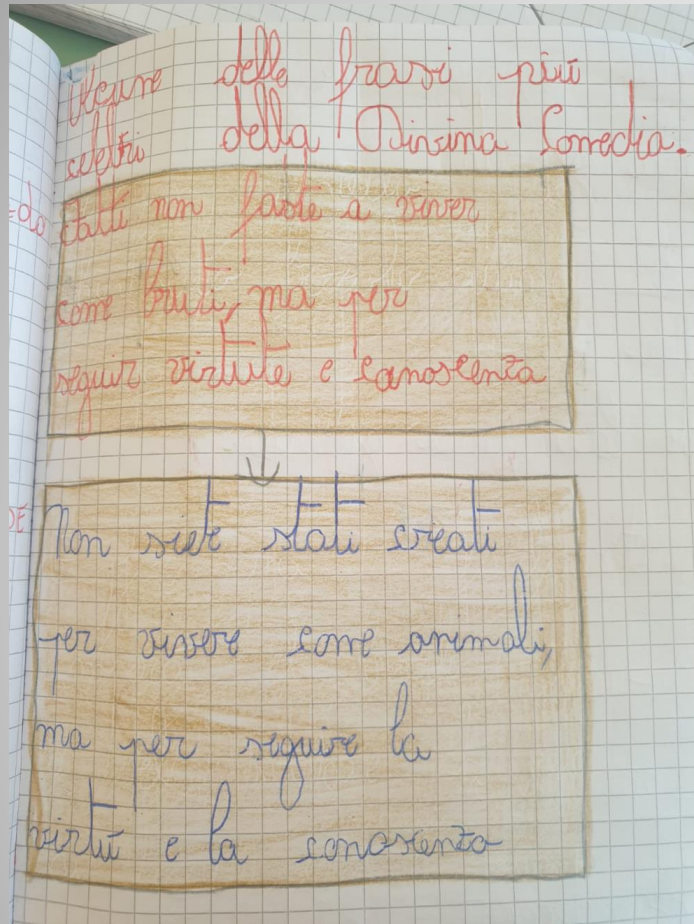 Alcune delle frasi più
celebri della Divina Comedia.
Fatti non foste a viver
come bruti, ma per
seguir virtute e canoscenza
Non siete stati creati
per vivere come animali,
ma per seguire la
virtù e la conoscenza